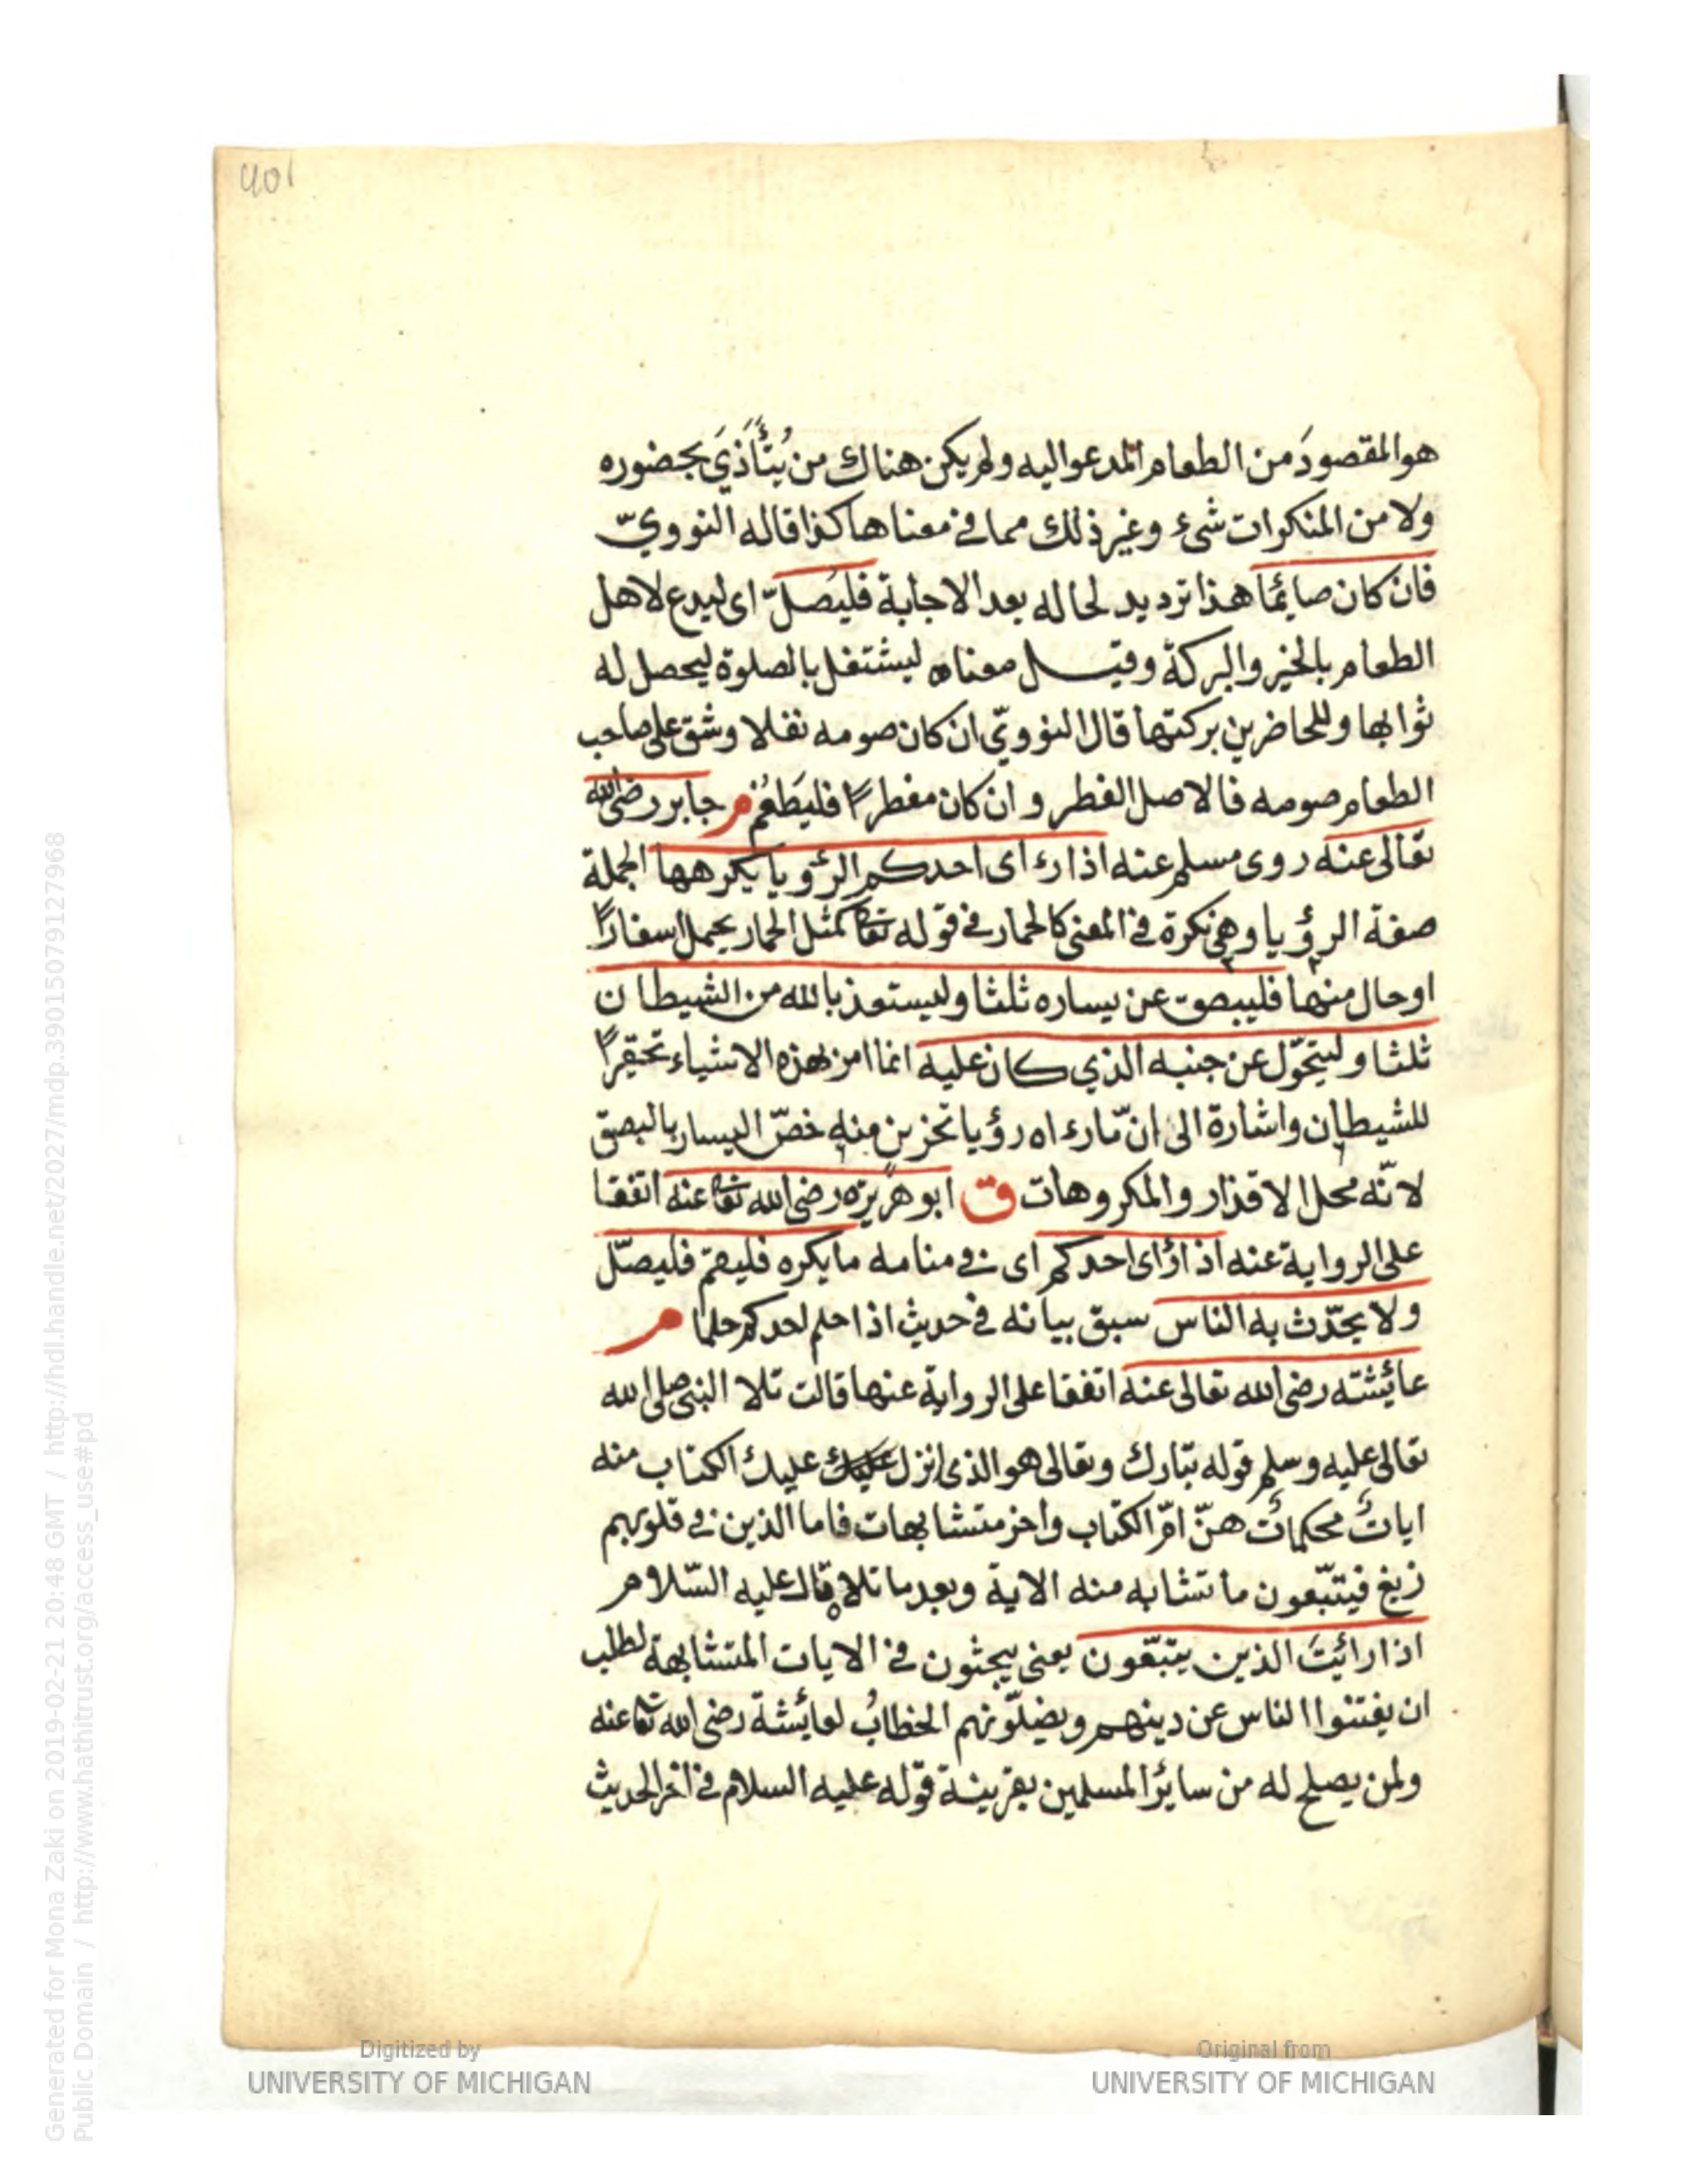 401
هو المقصودَ من الطعام المدعو اليه ولم يكن هناك من يُتَأَذَّى بحضوره
ولا من المنكرات شئ وغير ذلك مما فى معناها كذا قاله النووىّ
فان كان صائمًا هذا ترديد لحاله بعد الاجابة فليُصلّ اى ليدع لاهل
الطعام بالخير والبركة وقيل معناه ليشتغل بالصلوة ليحصل له
ثوابها وللحاضرين بركتها قال النووىّ ان كان صومه نفلا وشق على صاحب
الطعام صومه فالاصل الفطر وان كان مفطرًا فليَطعَم م جابر رضى الله
تعالى عنه روى مسلم عنه اذا رءاى احدكم الرؤيا يكرهها الجملة
صفة الرؤيا وهى نكرة فى المعنى كالحمار فى قوله تعا كمثل الحمار يحمل اسفارًا
او حال منها فليبصق عن يساره ثلثا وليستعذ بالله من الشيطان
ثلثا وليتحوّل عن جنبه الذي كان عليه انما امر بهذه الاشياء تحقيرًا
للشيطان واشارة الى انّ مارءاه رؤيا تحزين منه خصّ اليسار بالبصق
لانّه محل الاقذار والمكروهات ق ابو هريرة رضى الله تعا عنه اتفقا
على الرواية عنه اذا رأى احدكم اى فى منامه ما يكره فليقم فليصلّ
ولا يحدّث به الناس سبق بيانه فى حديث اذا حلم احدكم حلما م
عائشته رضى الله تعالى عنه اتفقا على الرواية عنها قالت تلا النبى صلى الله
تعالى عليه وسلم قوله تبارك وتعالى هو الذى انزل عليك عليك الكتاب منه
اياتٌ محكماتٌ هنّ امّ الكتاب واخر متشابهات فاما الذين فى قلوبهم
زيغ فيتبّعون ما تشابه منه الاية وبعد ما تلاه قال عليه السّلام
اذا رائيتَ الذين يتبّعون يعنى يبحثون فى الايات المتشابهة لطلب
ان يفتنوا الناس عن دينهم ويضلّونهم الخطابُ لعائشة رضى الله تعا عنه
ولمن يصلح له من سائر المسلمين بقرينة قوله عليه السلام فى اخر الحديث
Digitized by
UNIVERSITY OF MICHIGAN
Original from
UNIVERSITY OF MICHIGAN
Generated for Mona Zaki on 2019-02-21 20:48 GMT / http://hdl.handle.net/2027/mdp.39015079127968
Public Domain / http://www.hathitrust.org/access_use#pd